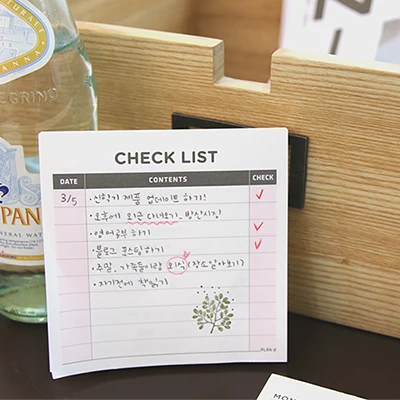 NATURALE
ANNA
PEGRINO
PAN
NERAL WATER
CHECK LIST
DATE CONTENTS CHECK
3/5 ·신학기 제품 업데이트 하기! ✓
·오후에 외근 다녀오기. 방산시장
·영어공부 하기 ✓
·블로그 포스팅하기 ✓
·주말, 가족들이랑 외식 (장소알아보기)
·자기전에 책읽기
PLAN d
MON